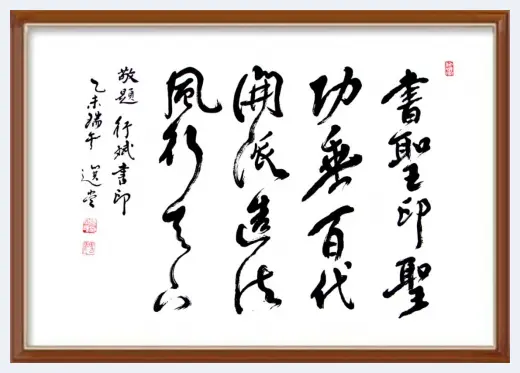 書聖印聖
功垂百代
開派造法
風行天下
敬題 行斌書印
乙未端午 選堂